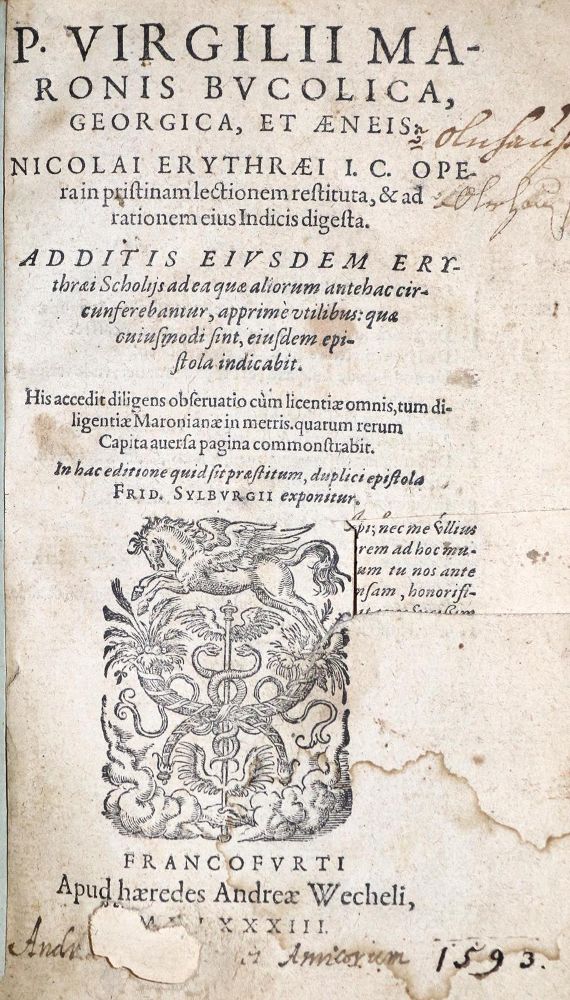 P. VIRGILII MA-
RONIS BVCOLICA,
GEORGICA, ET ÆNEIS:
NICOLAI ERYTHRÆI I. C. OPE-
ra in pristinam lectionem restituta, & ad
rationem eius Indicis digesta.
ADDITIS EIVSDEM ERY-
thræi Scholijs ad ea quæ aliorum antehac cir-
cunferebantur, apprimè vtilibus: quæ
cuiusmodi sint, eiusdem epi-
stola indicabit.
His accedit diligens obseruatio cùm licentiæ omnis, tum di-
ligentiæ Maronianæ in metris. quarum rerum
Capita auersa pagina commonstrabit.
In hac editione quid sit præstitum, duplici epistola
FRID. SYLBVRGII exponitur.
nec me vllius
rem ad hoc mu-
um tu nos ante
nsam, honorifi-
FRANCOFVRTI
Apud hæredes Andreæ Wecheli,
XXXIII.
Amicorum 1593.